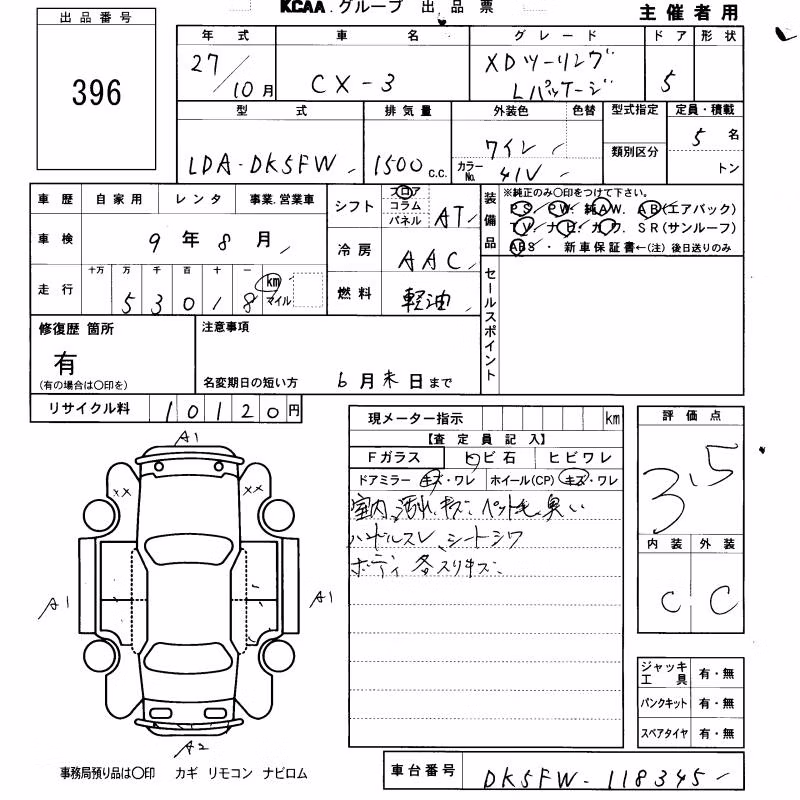 KCAA.グループ 出品票
主催者用
出品番号
396
年式 車名 グレード ドア 形状
27/10月 CX-3 XDツーリング Lパッケージ 5
型式 排気量 外装色 色替 型式指定 定員・積載
LDA-DK5FW 1500 c.c. ワイン 類別区分 5 名
カラーNo. 41V トン
車歴 自家用 レンタ 事業.営業車
シフト フロア コラム パネル AT
車検 9年8月
冷房 AAC
走行 十万 万 千 百 十 一
53018 km マイル
燃料 軽油
装備品 ※純正のみ〇印をつけて下さい。
PS. PW. 純AW. AB(エアバック)
TV. ナビ. カワ. SR(サンルーフ)
ABS・新車保証書←(注)後日送りのみ
セールスポイント
修復歴 箇所
有
(有の場合は〇印を)
注意事項
名変期日の短い方 6月末日まで
リサイクル料 10120円
現メーター指示 km
【査定員記入】
Fガラス ヒビ石 ヒビワレ
ドアミラー キズ・ワレ ホイール(CP) キズ・ワレ
室内 汚れ、キズ、ペット毛、臭い
ハンドルスレ、シートシワ
ボディ 各スリキズ、
評価点
3.5
内装 外装
C C
A1
XX XX
A1 A1
A2
ジャッキ工具 有・無
パンクキット 有・無
スペアタイヤ 有・無
事務局預り品は〇印 カギ リモコン ナビロム
車台番号 DK5FW-118345